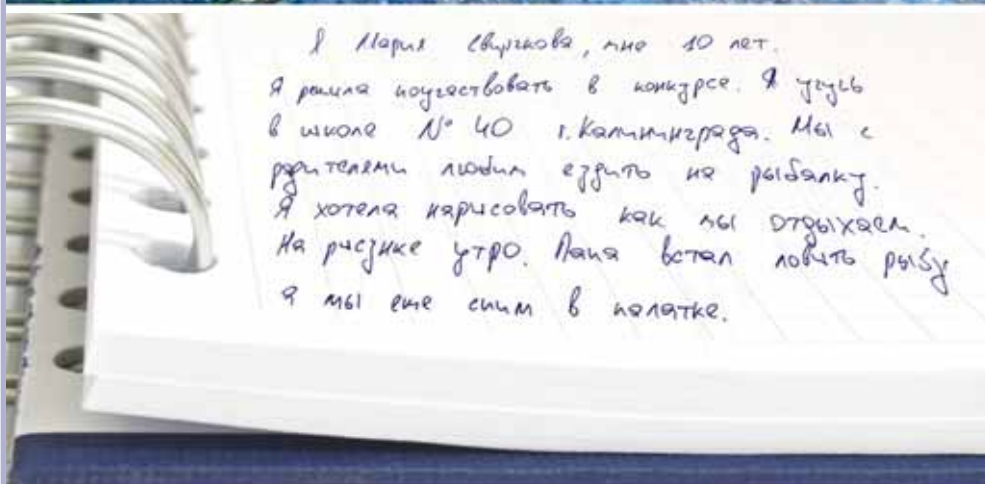 Я Мария Свиренова, мне 10 лет.
Я решила поучаствовать в конкурсе. Я учусь
в школе № 40 г. Калининграда. Мы с
родителями любим ездить на рыбалку.
Я хотела нарисовать как мы отдыхаем.
На рисунке утро. Папа встал ловить рыбу
а мы еще спим в палатке.